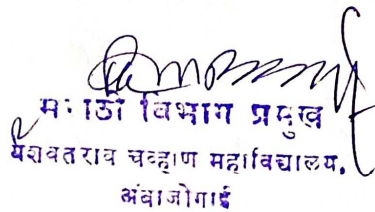 मराठी विभाग प्रमुख
यशवंतराव चव्हाण महाविद्यालय,
अंबाजोगाई